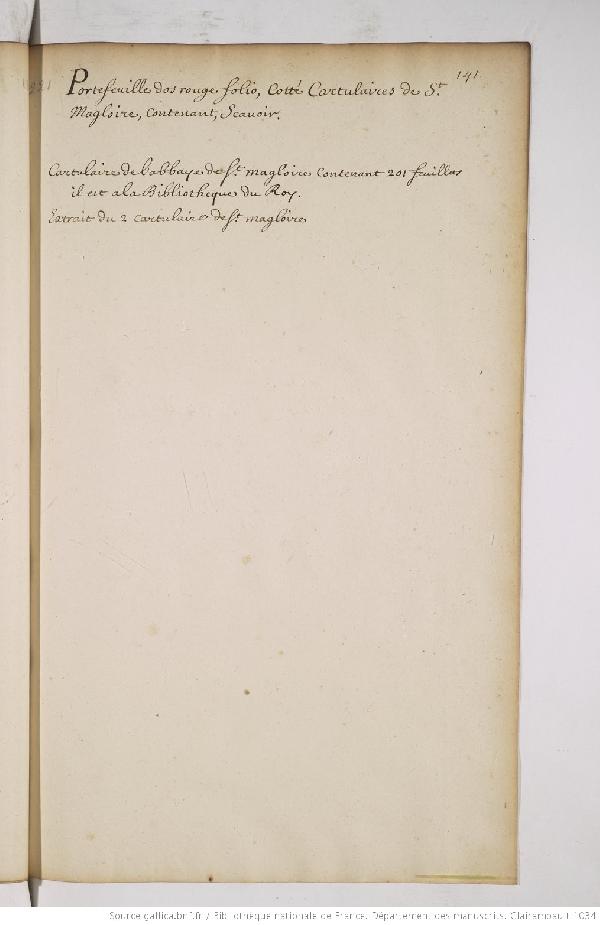 141
Portefeuille dos rouge folio, Cotté Cartulaires de St.
Magloire, Contenant, Scavoir.
Cartulaire de l'abbaye de St. magloire Contenant 201 feuilles
il est a la Bibliotheque du Roy.
Extrait du 2 Cartulaire de St. magloire
Source gallica.bnf.fr / Bibliothèque nationale de France. Département des manuscrits. Clairambault 1034